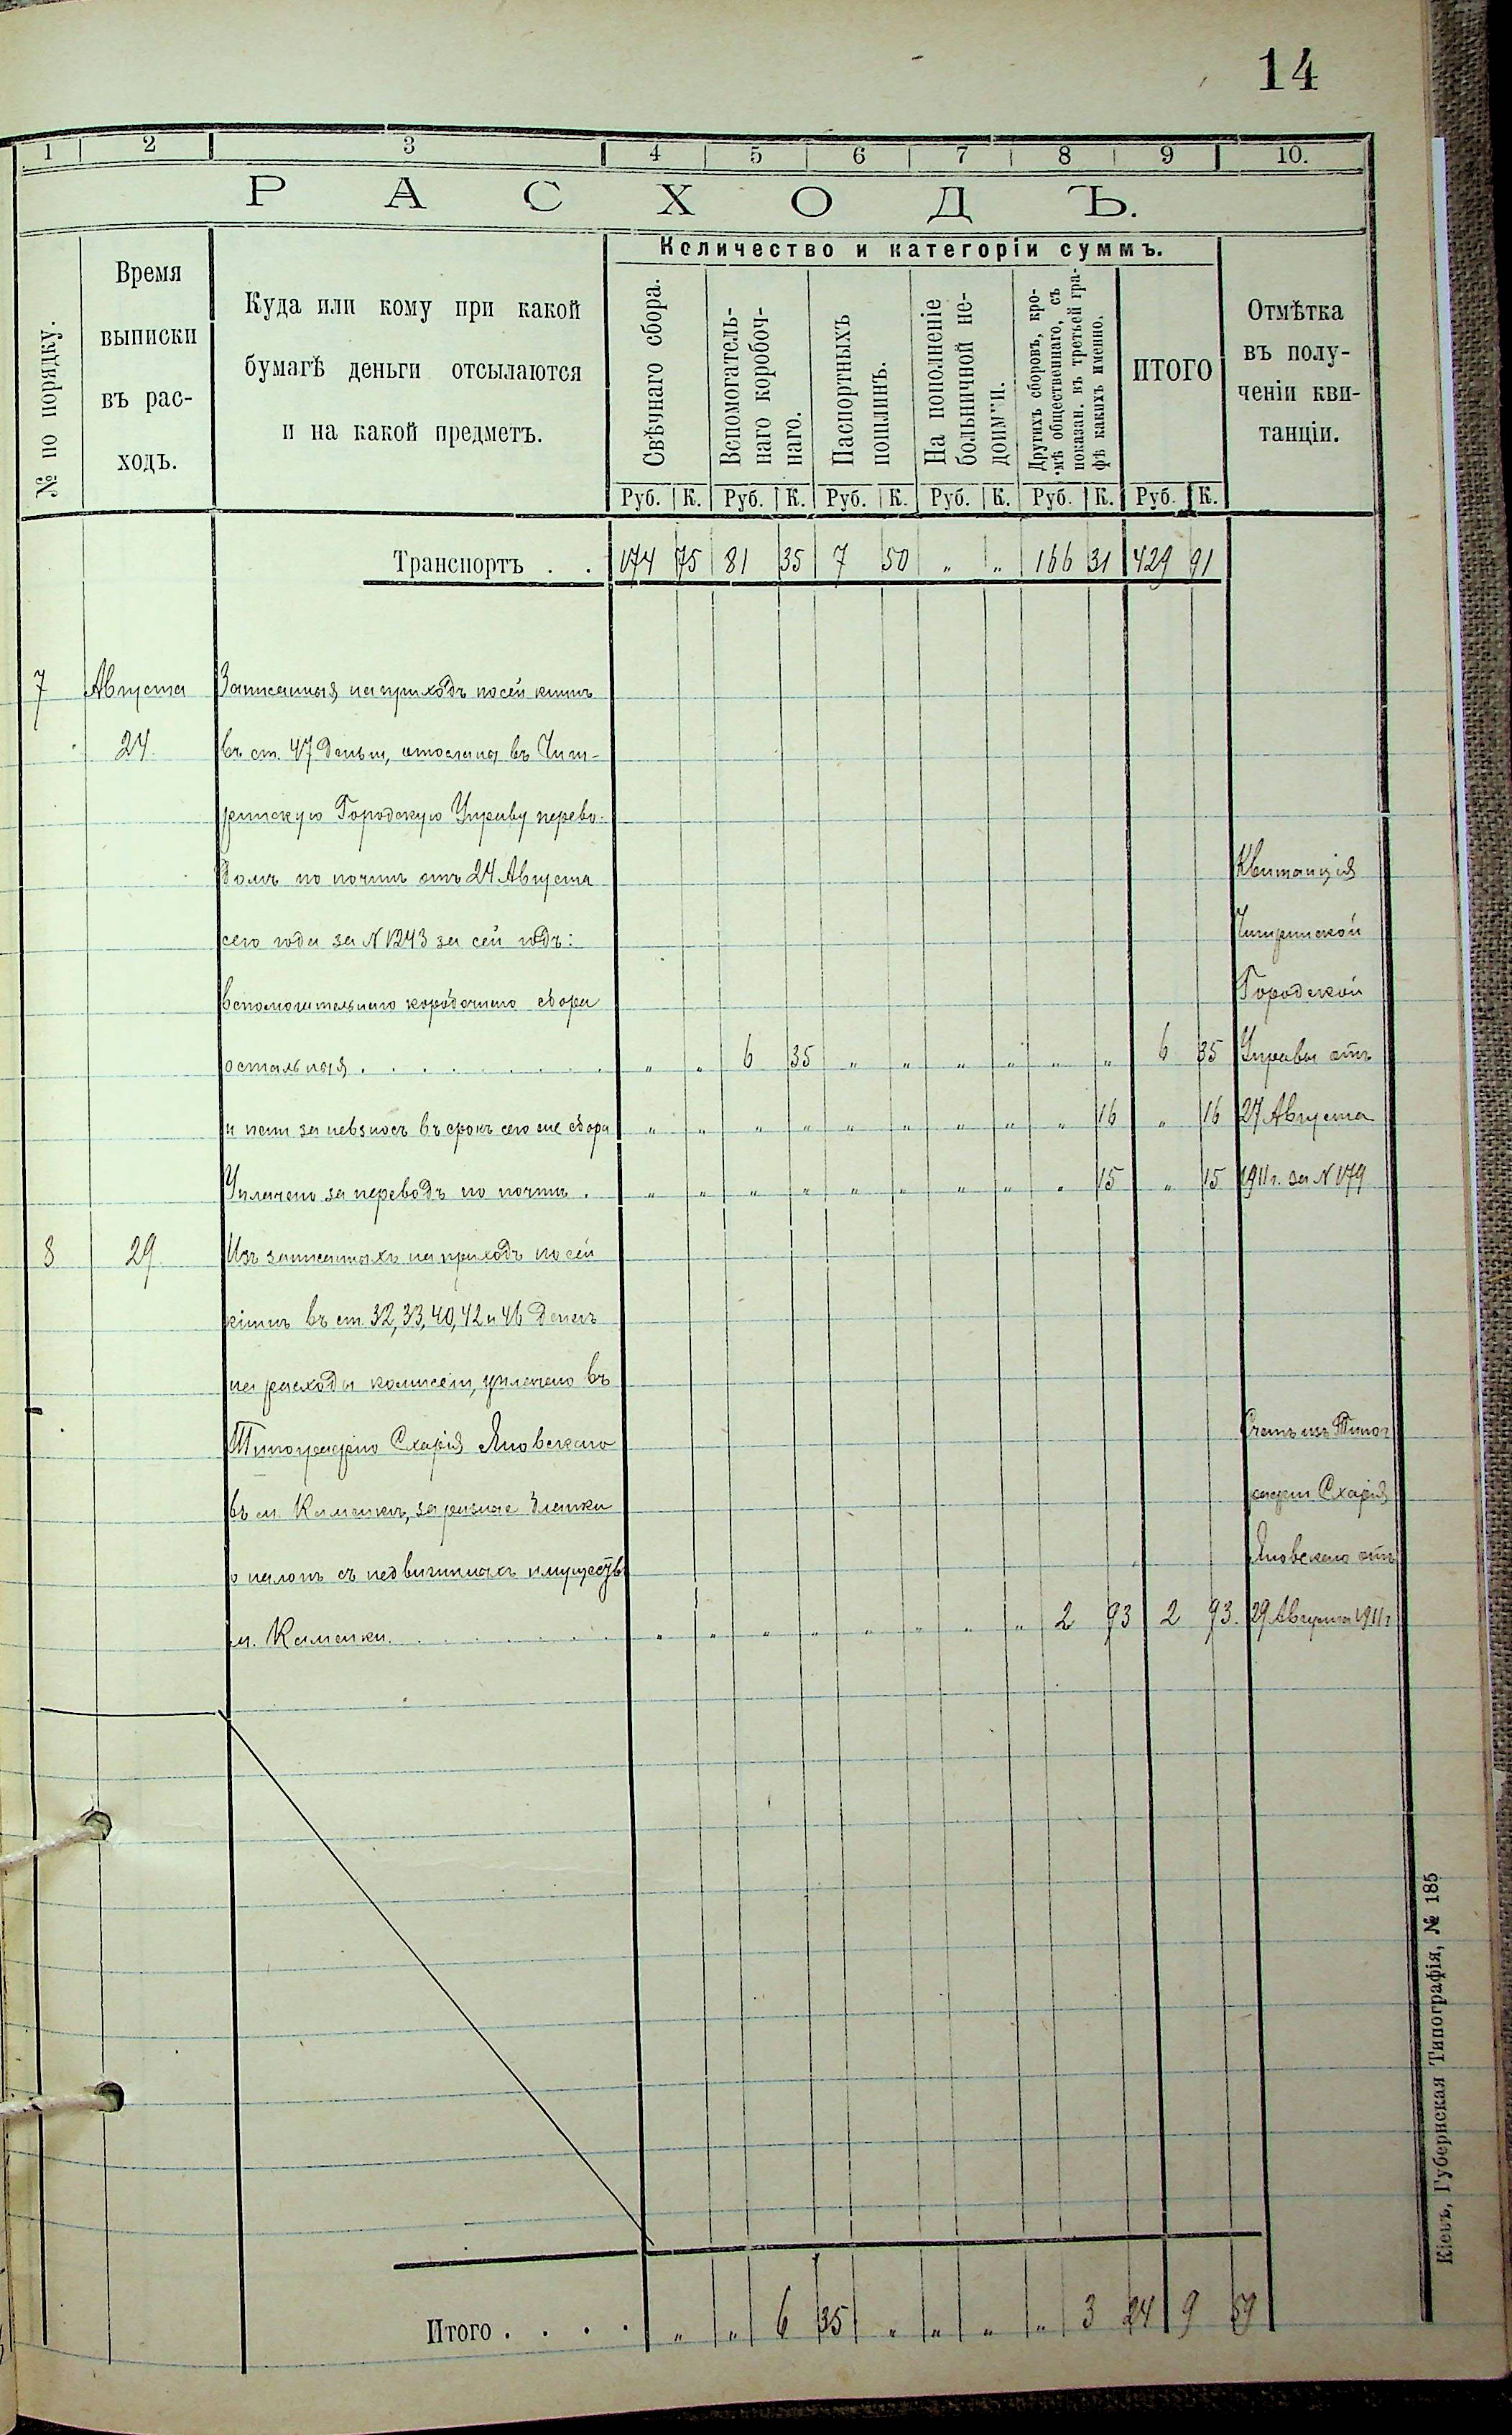 14
1 2 3 4 5 6 7 8 9 10.
РАСХОДЪ.
№ по порядку.
Время
выписки
въ рас-
ходъ.
Куда или кому при какой
бумагѣ деньги отсылаются
и на какой предметъ.
Количество и категоріи суммъ.
Свѣчнаго сбора.
Вспомогатель-
наго коробоч-
наго.
Паспортныхъ
пошлинъ.
На пополненіе
больничной не-
доимки.
Другихъ сборовъ, кро-
мѣ общественнаго, съ
показан. въ третьей гра-
фѣ какихъ именно.
ИТОГО
Отмѣтка
въ полу-
ченіи кви-
танціи.
Руб. К. Руб. К. Руб. К. Руб. К. Руб. К. Руб. К.
Транспортъ . . 174 75 81 35 7 50 „ „ 166 31 429 91
7 Августа Записанныя на приходъ по сей книгѣ
24 въ ст. 47 деньги, отосланы въ Чиги-
ринскую Городскую Управу перево-
домъ по почтѣ отъ 24 Августа Квитанція
сего года за № 1243 за сей годъ: Чигиринской
вспомогательнаго коробочнаго сбора Городской
остальныя . . . . . . . . „ „ 6 35 „ „ „ „ „ „ 6 35 Управы отъ
и пени за невзносъ въ срокъ сего же сбора „ „ „ „ „ „ „ „ „ 16 „ 16 27 Августа
Уплачено за переводъ по почтѣ . „ „ „ „ „ „ „ „ „ 15 „ 15 1911 г. за № 179
8 29 Изъ записанныхъ на приходъ по сей
книгѣ въ ст. 32, 33, 40, 42 и 46 денегъ
на расходы коммисіи, уплачено въ
Типографію Схарія Яновскаго Счетъ изъ Типог
въ м. Каменкѣ, за разные бланки рафіи Схарія
о налогѣ съ недвижимыхъ имуществъ Яновскаго отъ
м. Каменки . . . . . . . „ „ „ „ „ „ „ „ 2 93 2 93. 29 Августа 1911 г
Итого . . . . „ „ 6 35 „ „ „ „ 3 24 9 59
Кіевъ, Губернская Типографія, № 185